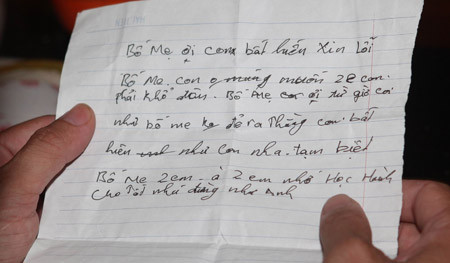 Bố Mẹ ơi con bất hiếu Xin lỗi
Bố Mẹ. con o muốn 2 e con.
phải khổ đâu. Bố Mẹ ơi từ giờ coi
như bố mẹ ko đẻ ra thằng con. bất
hiếu như con nha. tạm biệt
Bố Mẹ 2 em. à 2 em nhớ Học Hành
cho tốt nhé đừng như Anh